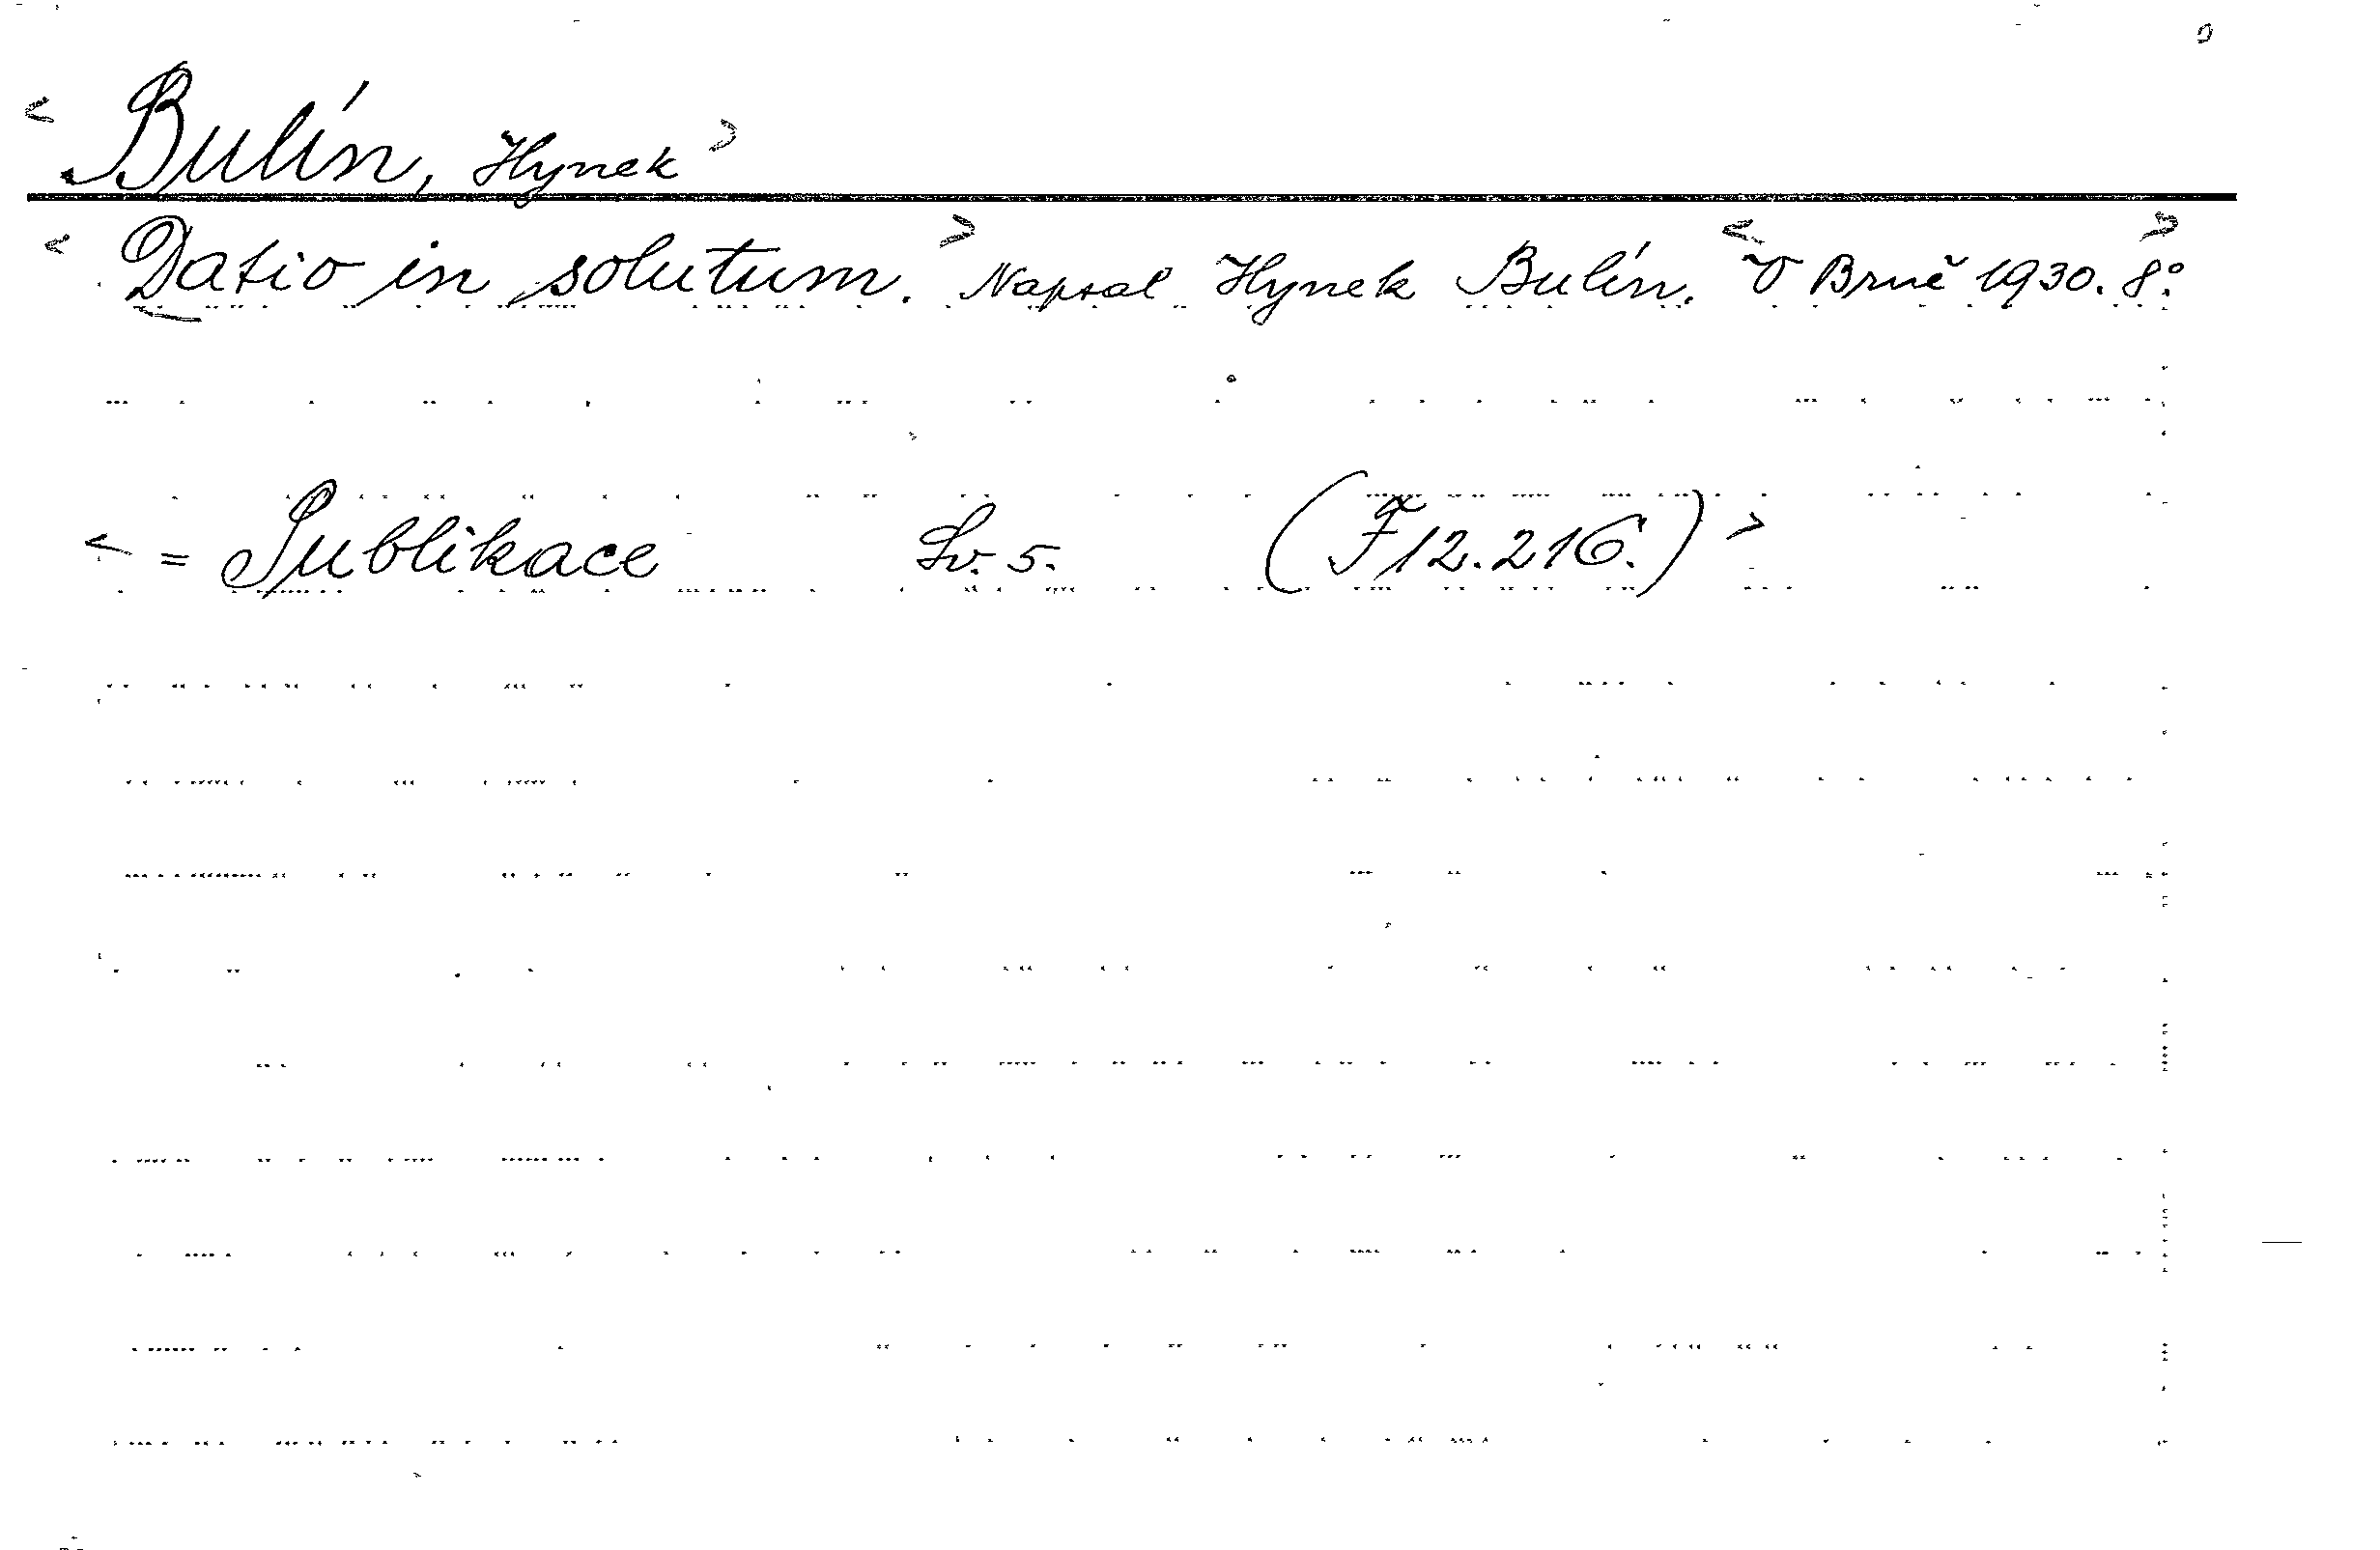 < Bulín, Hynek >
< Datio in solutum. > Napsal Hynek Bulín. < V Brně 1930. 8°. >
< = Publikace Sv. 5. (F 12.216.) >